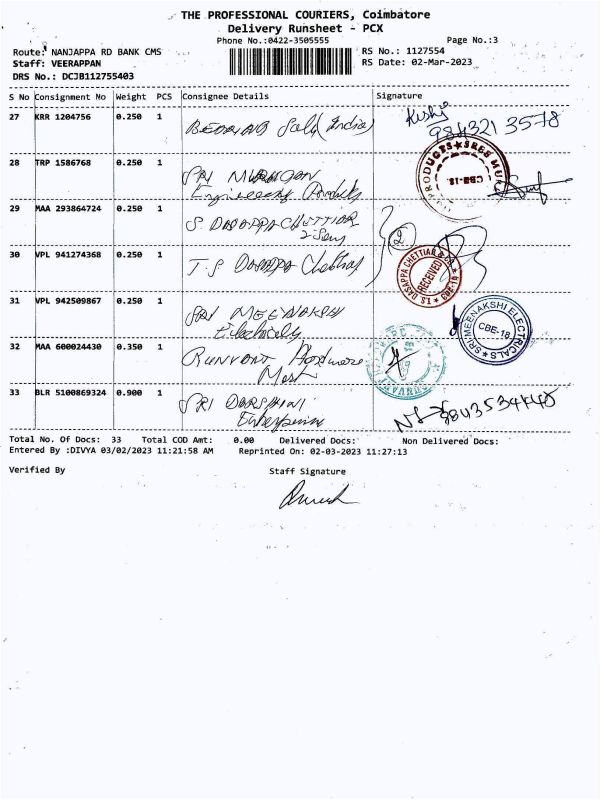 THE PROFESSIONAL COURIERS, Coimbatore
Delivery Runsheet - PCX
Phone No.:0422-3505555
Page No.:3
Route: NANJAPPA RD BANK CMS
RS No.: 1127554
Staff: VEERAPPAN
RS Date: 02-Mar-2023
DRS No.: DCJB112755403
S No Consignment No Weight PCS Consignee Details Signature
27 KRR 1204756 0.250 1 Sales (India)
984321 3578
28 TRP 1586768 0.250 1 SRI MURUGAN
Engineering Products
CBE-18
29 MAA 293864724 0.250 1 S. DASAPPA CHETTIAR
& Sons
2
30 VPL 941274368 0.250 1 T.S DASAPPA Chettiar
T.S. DASAPPA CHETTIAR
RECEIVED
31 VPL 942509867 0.250 1 SRI MEENAKSHI
Electricals
SRI MEENAKSHI ELECTRICALS
CBE-18
32 MAA 600024430 0.350 1 Hardware
Mart
33 BLR 5100869324 0.900 1 SRI DARSHINI
Enterprises
9843534445
Total No. Of Docs: 33 Total COD Amt: 0.00 Delivered Docs: Non Delivered Docs:
Entered By :DIVYA 03/02/2023 11:21:58 AM Reprinted On: 02-03-2023 11:27:13
Verified By Staff Signature